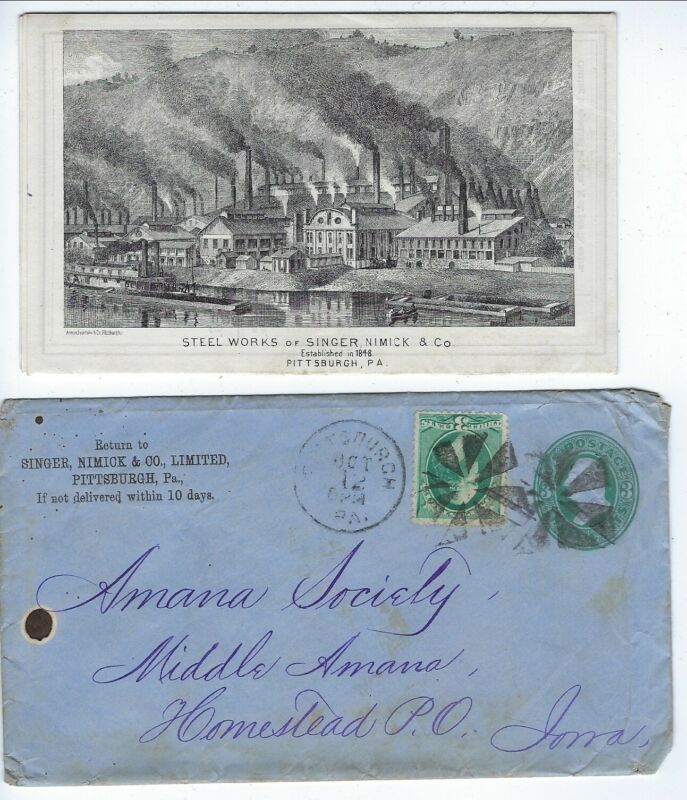 STEEL WORKS OF SINGER, NIMICK & CO.
Established in 1848.
PITTSBURGH, PA.
Return to
SINGER, NIMICK & CO., LIMITED,
PITTSBURGH, Pa.,
If not delivered within 10 days.
PITTSBURGH
OCT
12
6PM
PA.
3
POSTAGE
Amana Society,
Middle Amana,
Homestead P.O. Iowa,